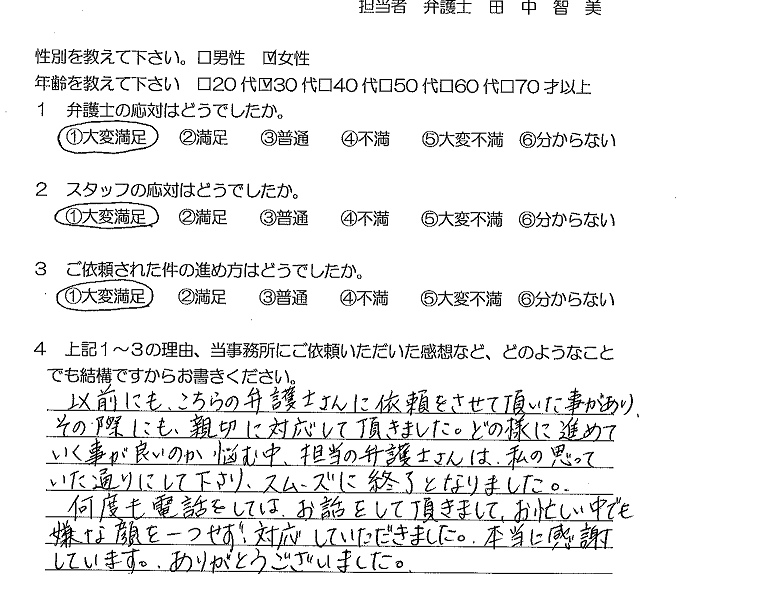 担当者　弁護士　田　中　智　美
性別を教えて下さい。□男性　☑女性
年齢を教えて下さい　□20代☑30代□40代□50代□60代□70才以上
1　弁護士の応対はどうでしたか。
①大変満足　②満足　③普通　④不満　⑤大変不満　⑥分からない
2　スタッフの応対はどうでしたか。
①大変満足　②満足　③普通　④不満　⑤大変不満　⑥分からない
3　ご依頼された件の進め方はどうでしたか。
①大変満足　②満足　③普通　④不満　⑤大変不満　⑥分からない
4　上記1～3の理由、当事務所にご依頼いただいた感想など、どのようなこと
でも結構ですからお書きください。
以前にも、こちらの弁護士さんに依頼をさせて頂いた事があり、
その際にも、親切に対応して頂きました。どの様に進めて
いく事が良いのか悩む中、担当の弁護士さんは、私の思って
いた通りにして下さり、スムーズに終了となりました。
何度も電話をしては、お話をして頂きまして、お忙しい中でも
嫌な顔を一つせず、対応していただきました。本当に感謝
しています。ありがとうございました。